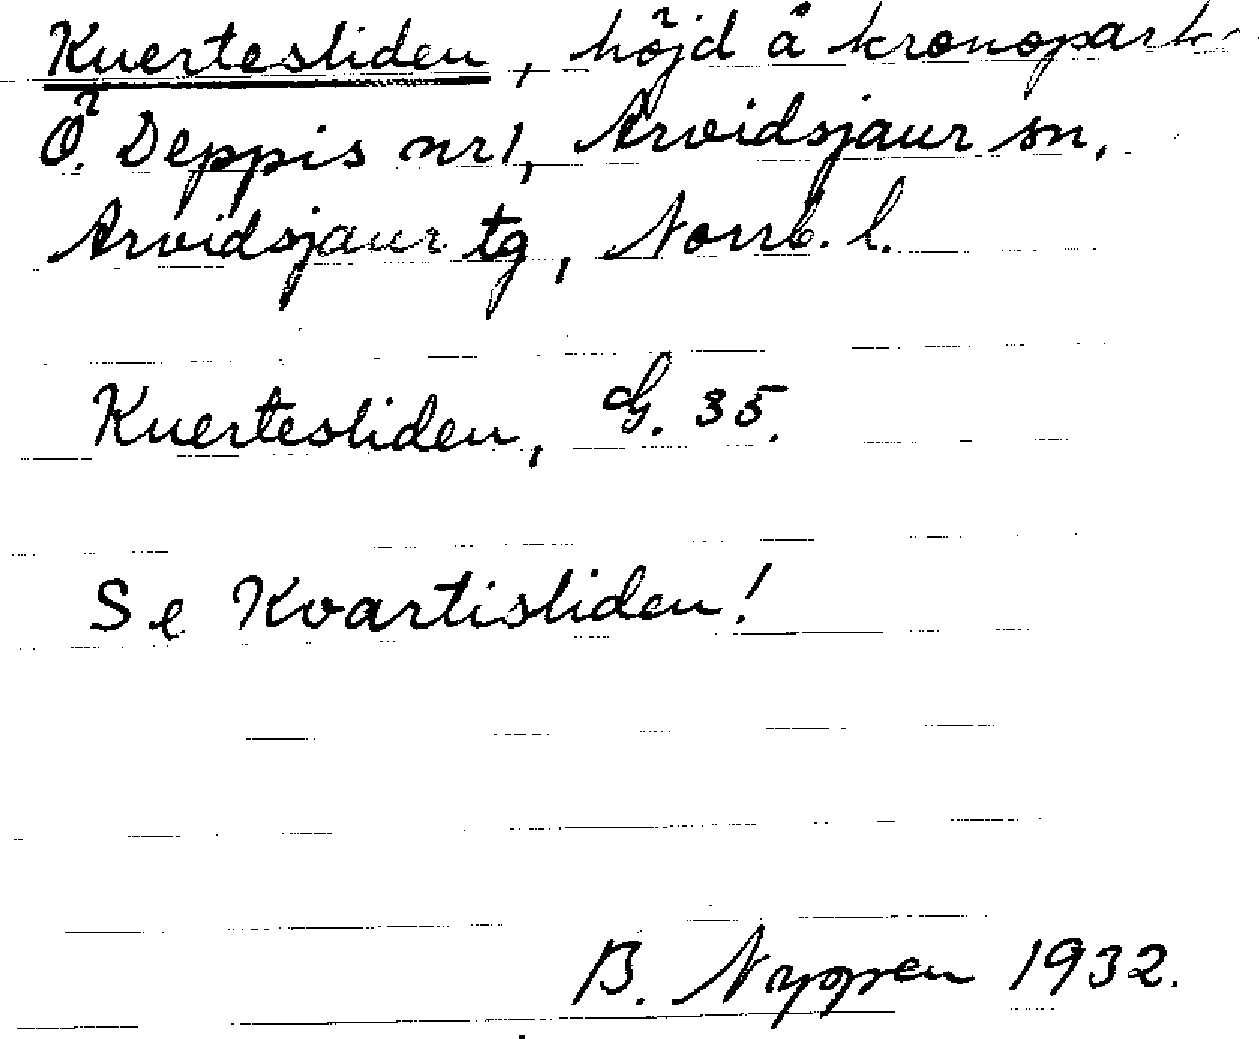 Kuertesliden, höjd å kronopark
Ö. Deppis nr 1, Arvidsjaur sn,
Arvidsjaur tg, Norrb. l.
Kuertesliden, G. 35.
Se Kvartisliden!
B. Nyppen 1932.